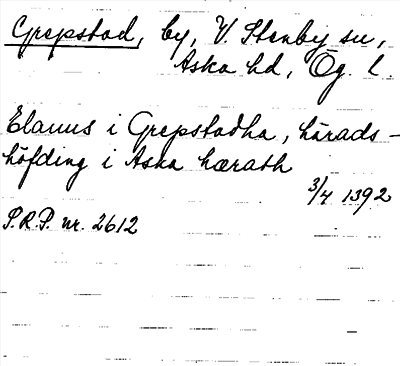 Grepstad, by, V. Stenby sn,
Aska hd, Ög. l.
Elauus i Grepstadha, härads-
höfding i Aska hærath
3/4 1392
S.R.P. nr. 2612